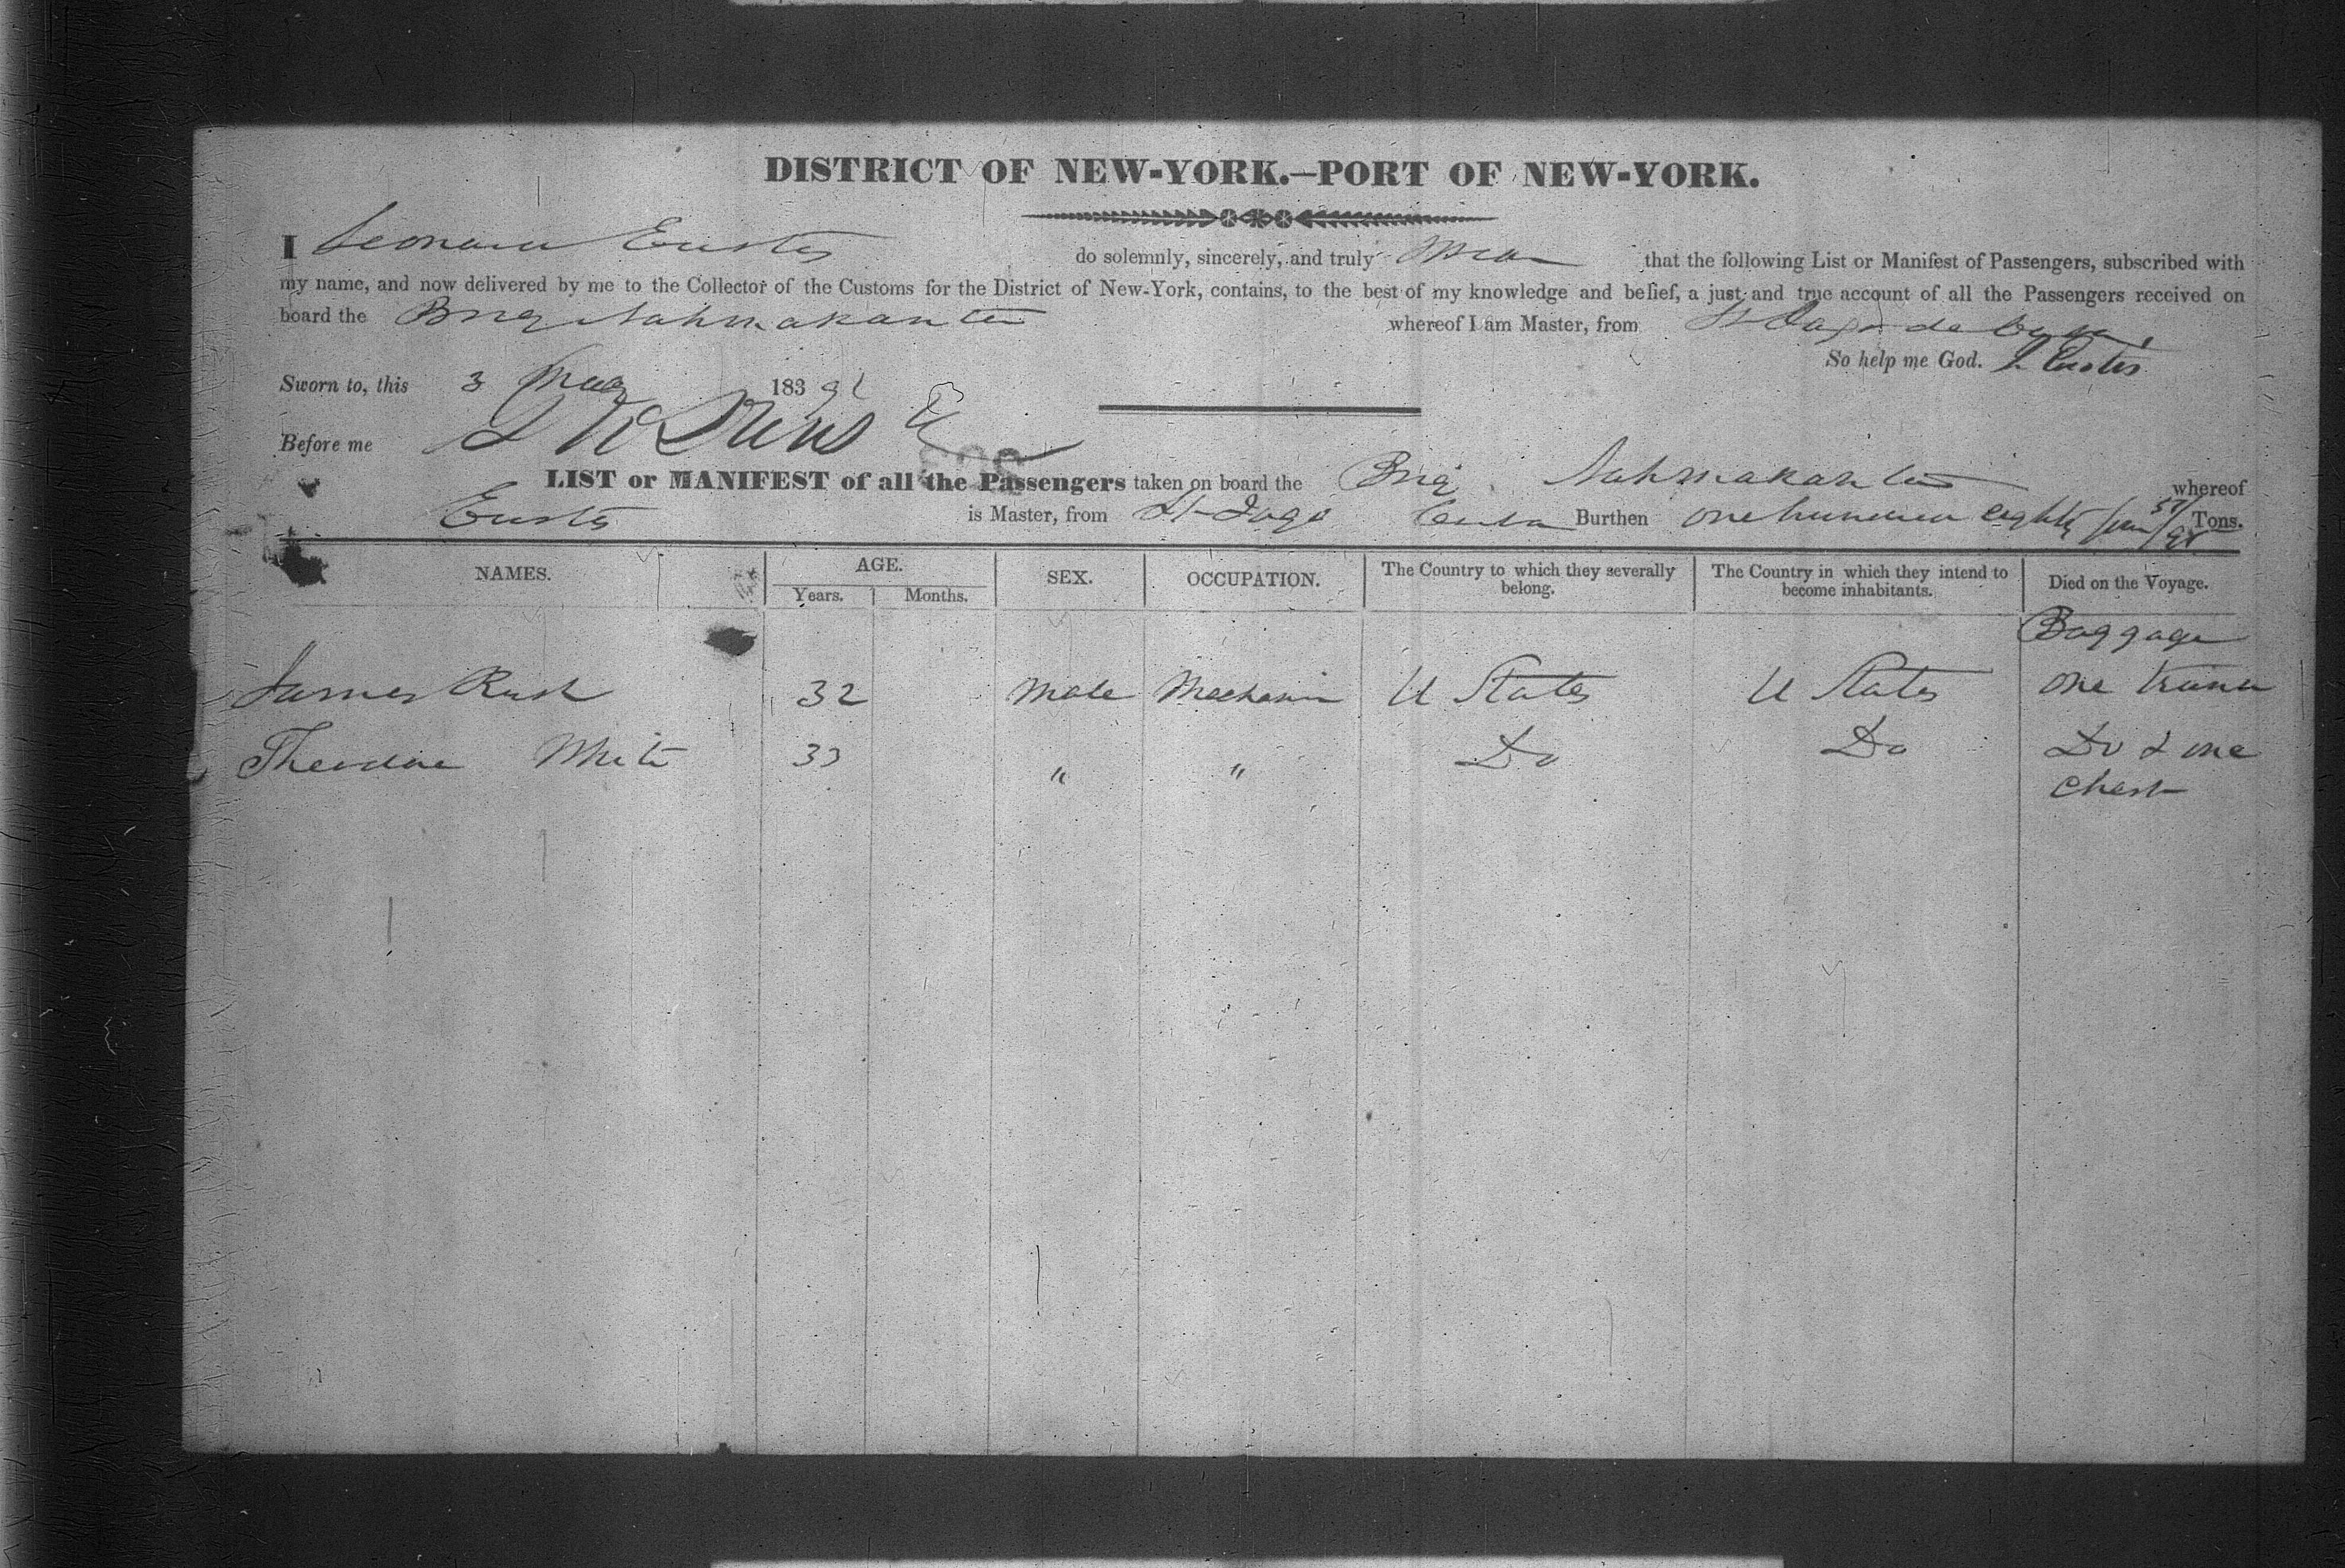 DISTRICT OF NEW-YORK.—PORT OF NEW-YORK.
I Leonard Eustis do solemnly, sincerely, and truly swear that the following List or Manifest of Passengers, subscribed with
my name, and now delivered by me to the Collector of the Customs for the District of New-York, contains, to the best of my knowledge and belief, a just and true account of all the Passengers received on
board the Brig Nahmakanta whereof I am Master, from St Iago de Cuba
So help me God. L Eustis
Sworn to, this 3 May 1839
Before me
LIST or MANIFEST of all the Passengers taken on board the Brig Nahmakanta whereof
Eustis is Master, from St Iago Cuba Burthen one hundred eighty Tons.
NAMES. AGE. SEX. OCCUPATION. The Country to which they severally belong. The Country in which they intend to become inhabitants. Died on the Voyage.
Years. Months.
Baggage
James Rush 32 Male Mechanic U States U States one trunk
Theodore White 33 " " Do Do Do & one
Chest